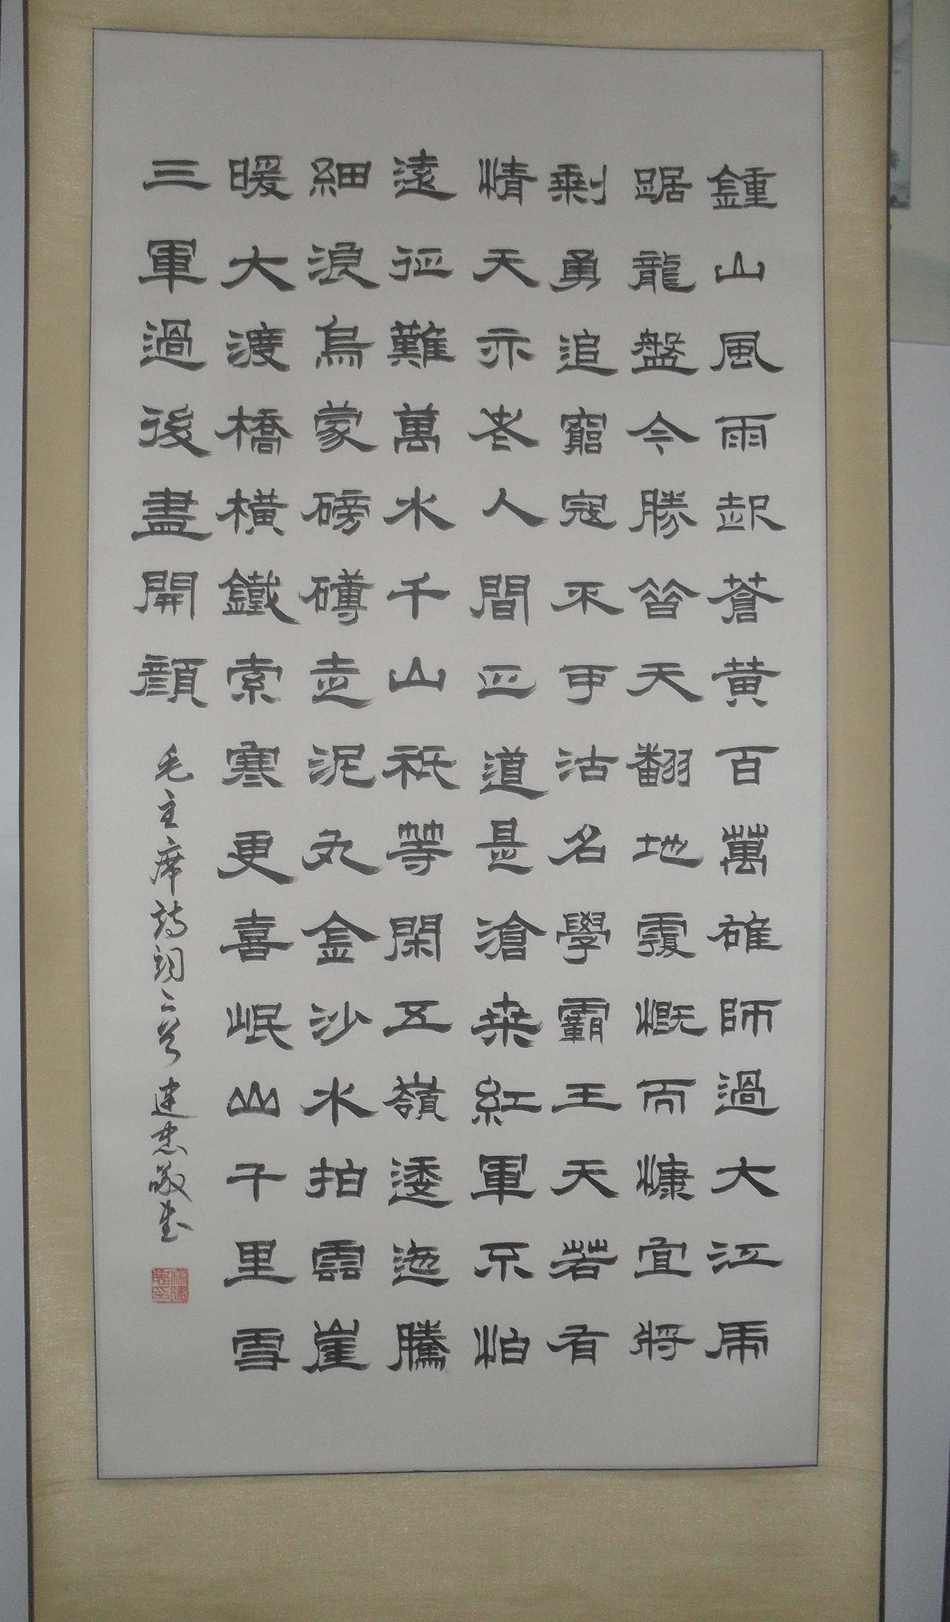 鍾山風雨起蒼黃百萬雄師過大江虎
踞龍盤今勝昔天翻地覆慨而慷宜將
剩勇追窮寇不可沽名學霸王天若有
情天亦老人間正道是滄桑紅軍不怕
遠征難萬水千山祇等閑五嶺逶迤騰
細浪烏蒙磅礴走泥丸金沙水拍雲崖
暖大渡橋橫鐵索寒更喜岷山千里雪
三軍過後盡開顏
毛主席詩詞二首 建忠敬書